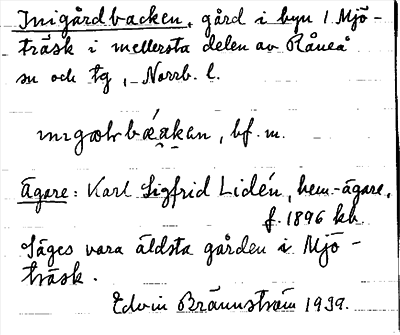 Inigårdbacken, gård i byn / Mjö-
träsk i mellersta delen av Råneå
sn och tg, Norrb. l.
bf. m.
Ägare: Karl Sigfrid Lidén, hem.-ägare,
f. 1896 kb.
Säges vara äldsta gården i Mjö-
träsk.
Edvin Brännström 1939.